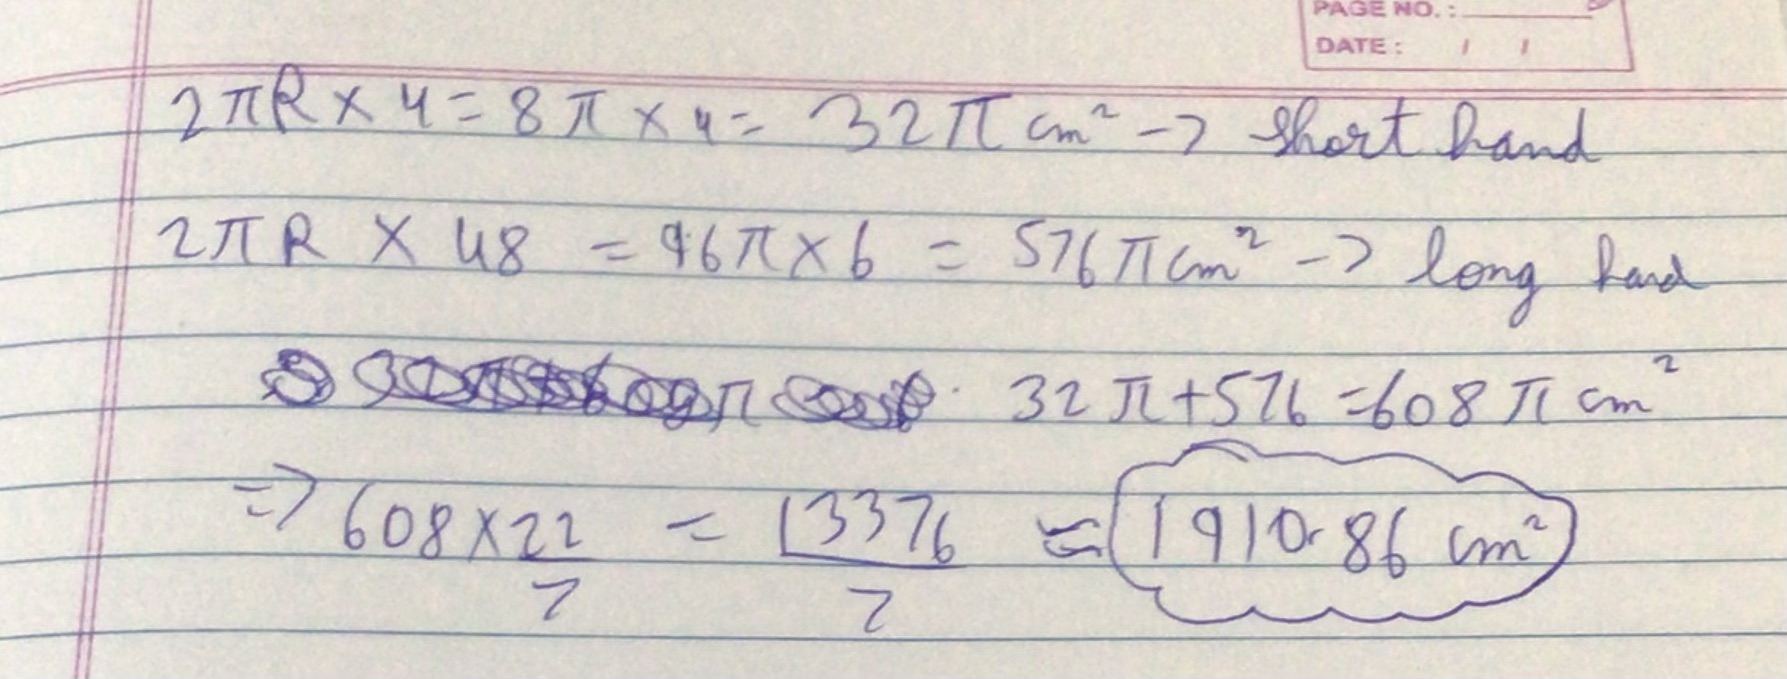 PAGE NO. :
DATE : / /
2πR × 4 = 8π × 4 = 32π cm² -> short hand
2πR × 48 = 96π × 6 = 576π cm² -> long hand
32π + 576 = 608π cm²
=> 608 × 22/7 = 13376/7 ≈ 1910.86 cm²